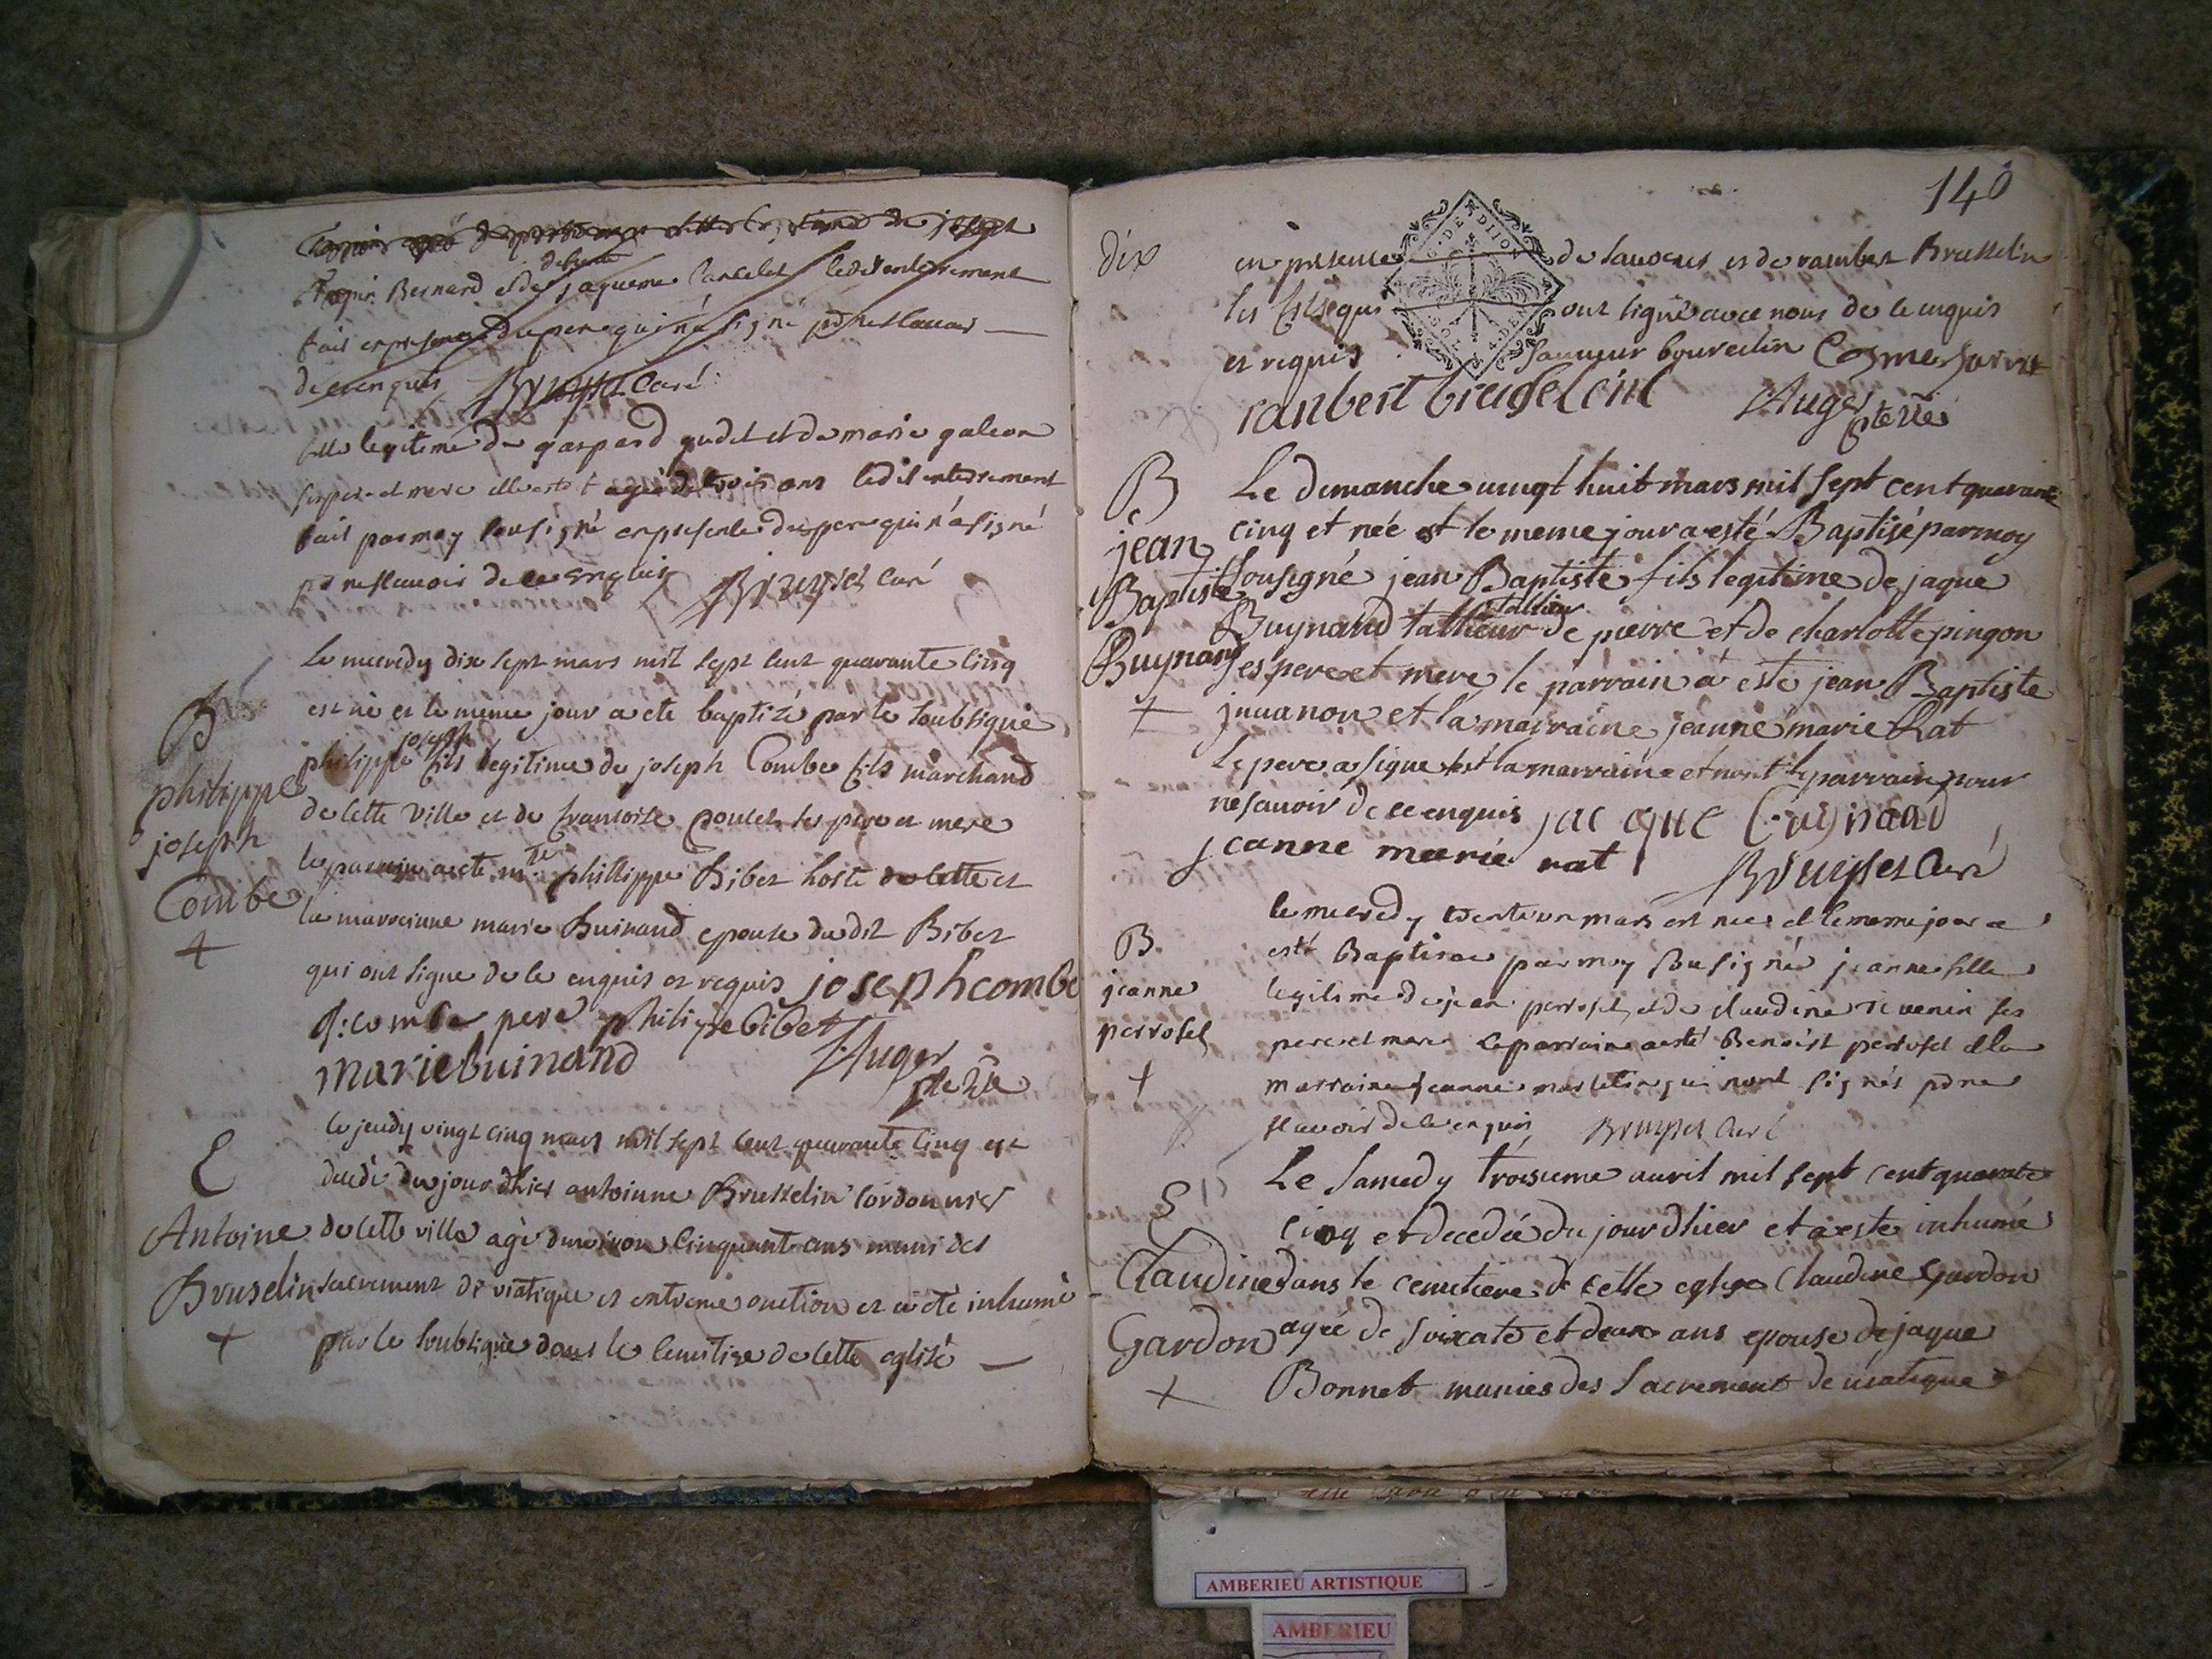 Bernard et de defunte jaqueme Lancelot ledit enterrement
fait en presence du pere qui n'a signé pr ne scavoir
de ce enquis Bruyset Curé
fille legitime de gaspard gudet et de marie galion
ses pere et mere elle estoit agée de trois ans ledit enterrement
fait par moy sousigné en presence du pere qui n'a signé
pr ne scavoir de ce enquis Bruyset curé
B
philippe
joseph
Combe
+
Le mecredy dix sept mars mil sept cent quarante cinq
est né et le même jour a eté baptizé par le soubsigné
philippe joseph fils legitime de joseph Combe fils marchand
de cette ville et de francoise poulet ses pere et mere
le parrain a eté mre phillippe Bibet hoste de cette et
la marreinne marie Buinand epouse dudit Bibet
qui ont signe de ce enquis et requis joseph combe
q: combe pere philipe bibet
marie buinand Auger ptre vre
E
Antoine
Bruselin
+
Le jeudy vingt cinq mars mil sept cent quarante cinq est
decedé du jour d'hier antoinne Brusselin cordonnier
de cette ville agé d'environ cinquante ans muni des
sacrement de viatique et extreme onction et a eté inhumé
par le soubsigné dans le cemitiere de cette eglise
140
dix
en presence de sauveur et de rambert Brusselin
ses fils qui ont signé avec nous de ce enquis
et requis sauveur bourcelin Cosme
ranbert breuselint Auger ptre vre
B
jean
Baptiste
Buynand
+
Le dimanche vingt huit mars mil sept cent quarante
cinq et née et le meme jour a esté Baptisé par moy
sousigné jean Baptiste fils legitime de jaque
Buynand tallieur tallieur de pierre et de charlotte pingon
ses pere et mere le parrain a esté jean Baptiste
juuanon et la marraine jeanne marie Rat
le pere a signe et la marraine et non le parrain pour
ne scavoir de ce enquis jac que buynand
jeanne marie rat Bruyset Curé
B.
jeanne
perrosel
+
le mecredy trente un mars est nee et le meme jour a
esté Baptisee par moy sousigné jeanne fille
legitime de jean perrosel et de claudine revenin ses
pere et mere le parrain a esté Benoist perrosel et la
marraine jeanne marletin qui n'ont signés pr ne
scavoir de ce enquis Bruyset Curé
E
Claudine
Gardon
+
Le samedy troisieme avril mil sept cent quarate
cinq et decedée du jour dhier et a este inhumé
dans le cemitiere de cette eglise Claudine Gardon
agée de soixate et deux ans epouse de jaque
Bonnet munies des sacrement de viatique et
AMBERIEU ARTISTIQUE
AMBERIEU